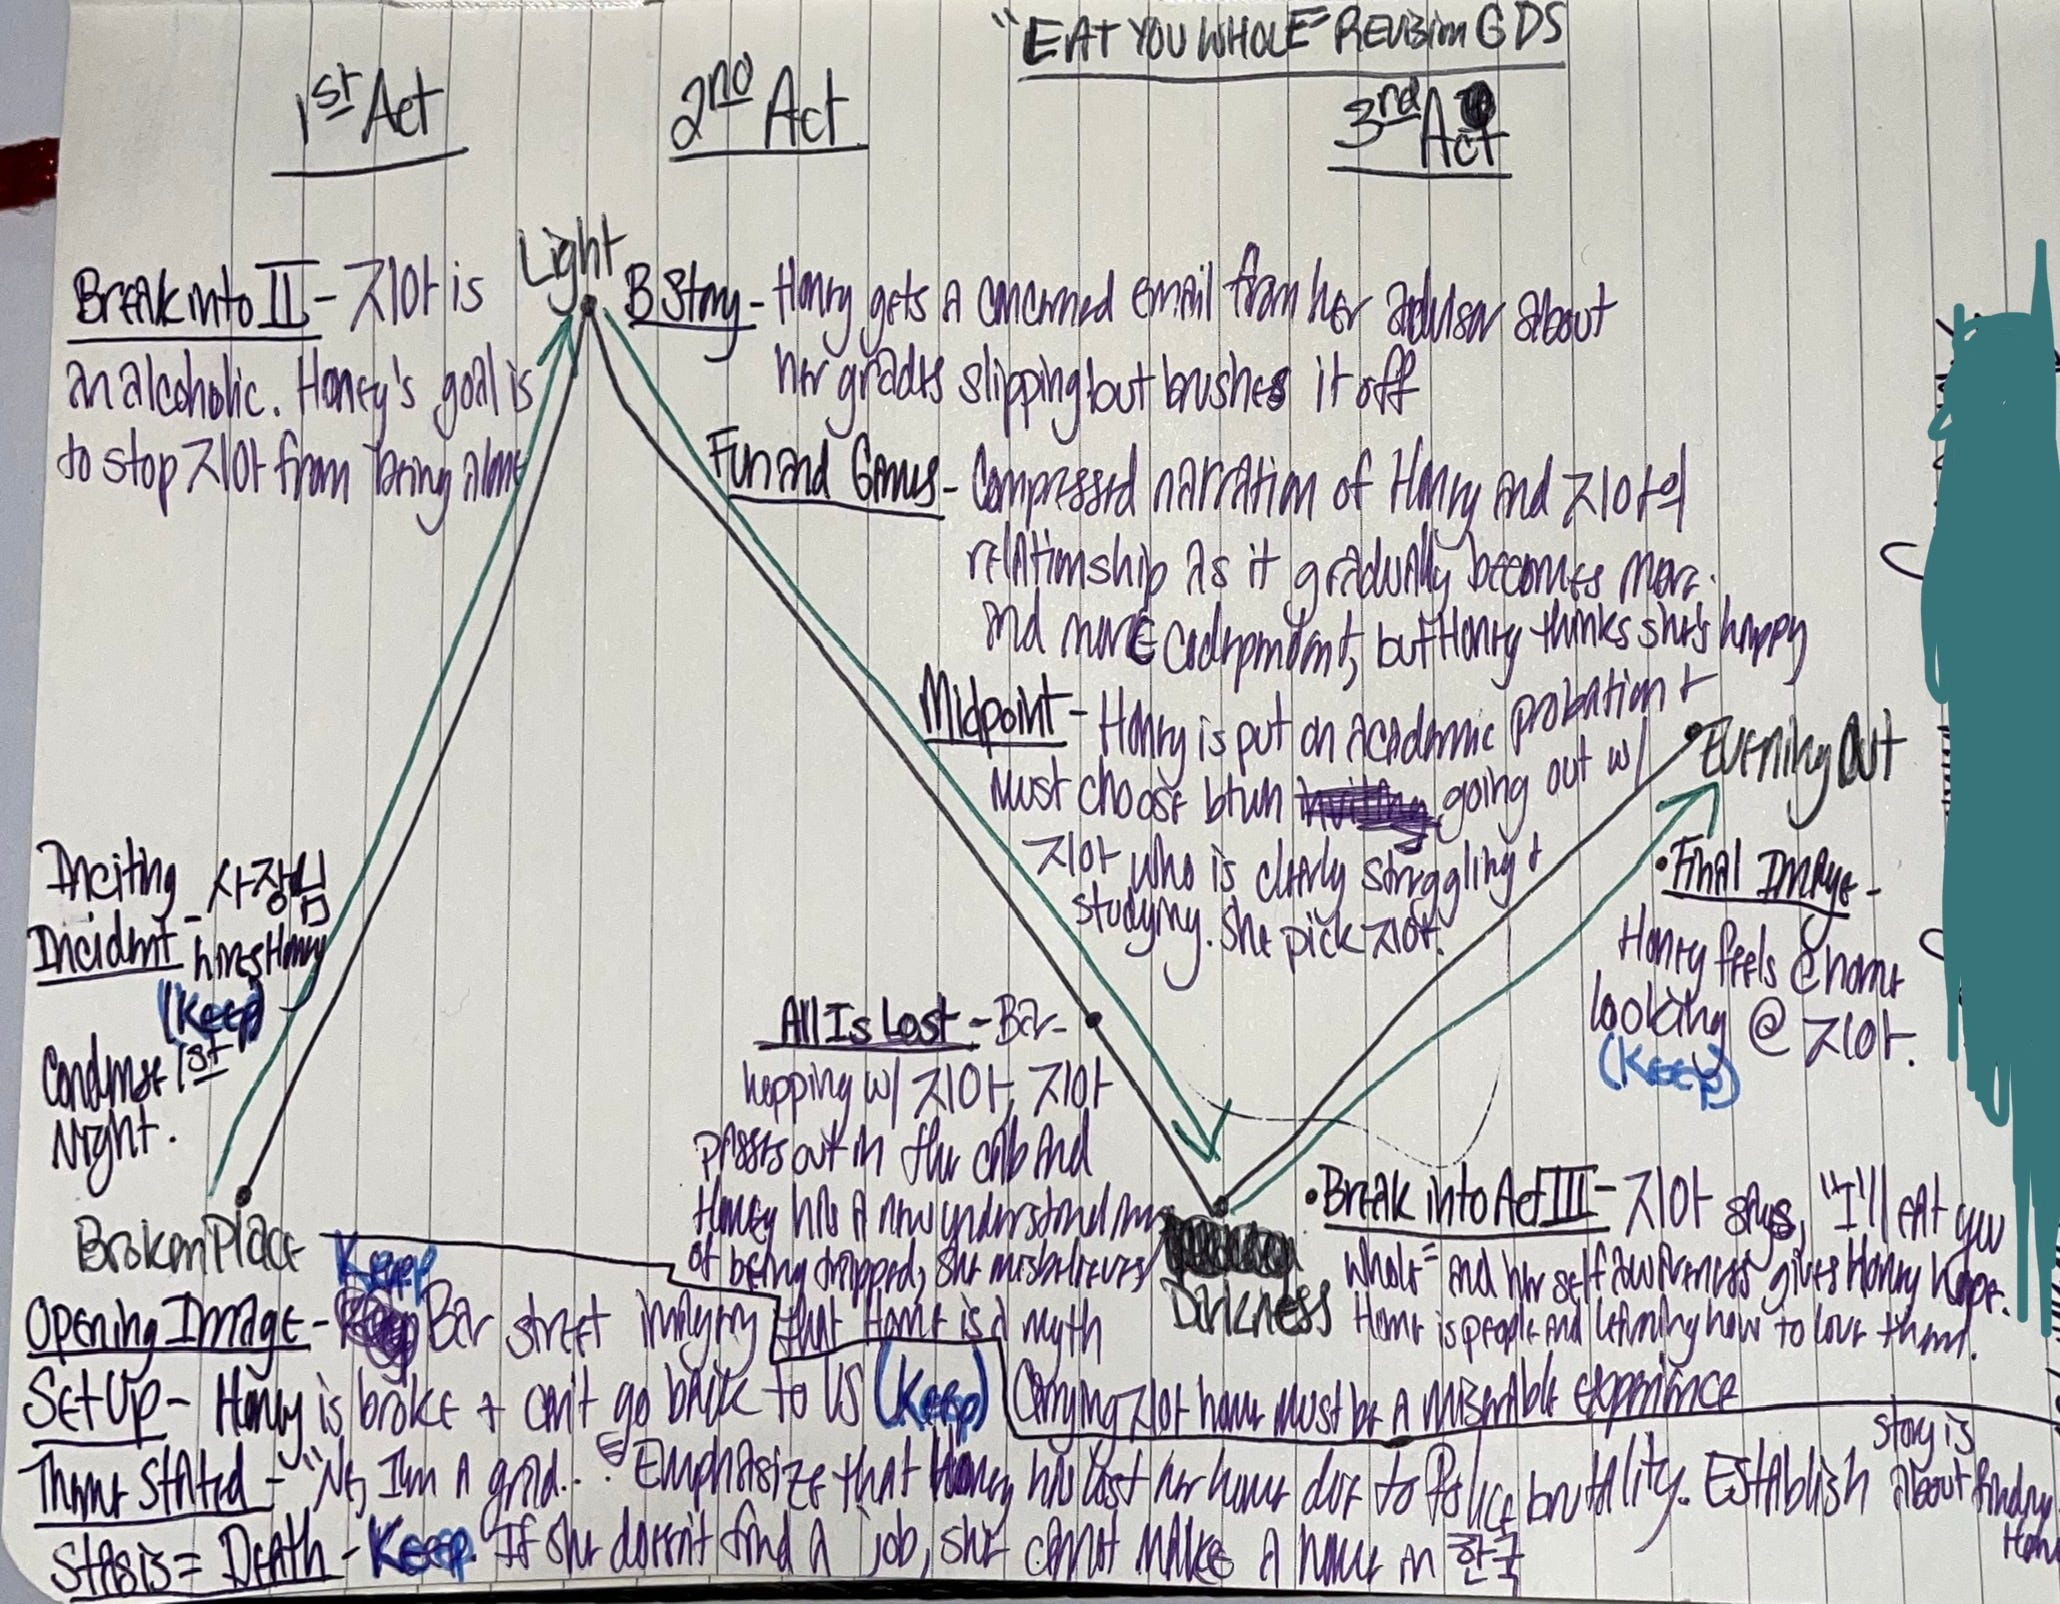 "EAT YOU WHOLE" REVISION GDS
1st Act
2nd Act
3rd Act
Light
Break into II - 지아 is
an alcoholic. Honey's goal is
to stop 지아 from being alone
B Story - Honey gets a concerned email from her advisor about
her grades slipping but brushes it off
Fun and Games - Compressed narration of Honey and 지아의
relationship as it gradually becomes more
and more codependent, but Honey thinks she's happy
Midpoint - Honey is put on academic probation +
must choose btwn going out w/
지아 who is clearly struggling +
studying. She pick 지아.
Evening Out
Inciting
Incident - 사장님
hires Honey
(Keep)
Condense 1st
Night.
Broken Place
All Is Lost - Bar-
hopping w/ 지아, 지아
passes out in the cab and
Honey has a new understanding
of being trapped, she misbelieves
that Home is a myth
Carrying 지아 home must be a miserable experience
Darkness
• Final Image -
Honey feels @ home
looking @ 지아.
(Keep)
• Break into Act III - 지아 says, "I'll eat you
whole" and her self awareness gives Honey hope.
Home is people and learning how to love them.
Keep
Opening Image - Bar street imagery
Set Up - Honey is broke + can't go back to US (Keep)
Theme Stated - "No, I'm a grad..." Emphasize that Honey has lost her home due to Police brutality. Establish story is about finding
Stasis = Death - Keep. If she doesn't find a job, she cannot make a home in 한국